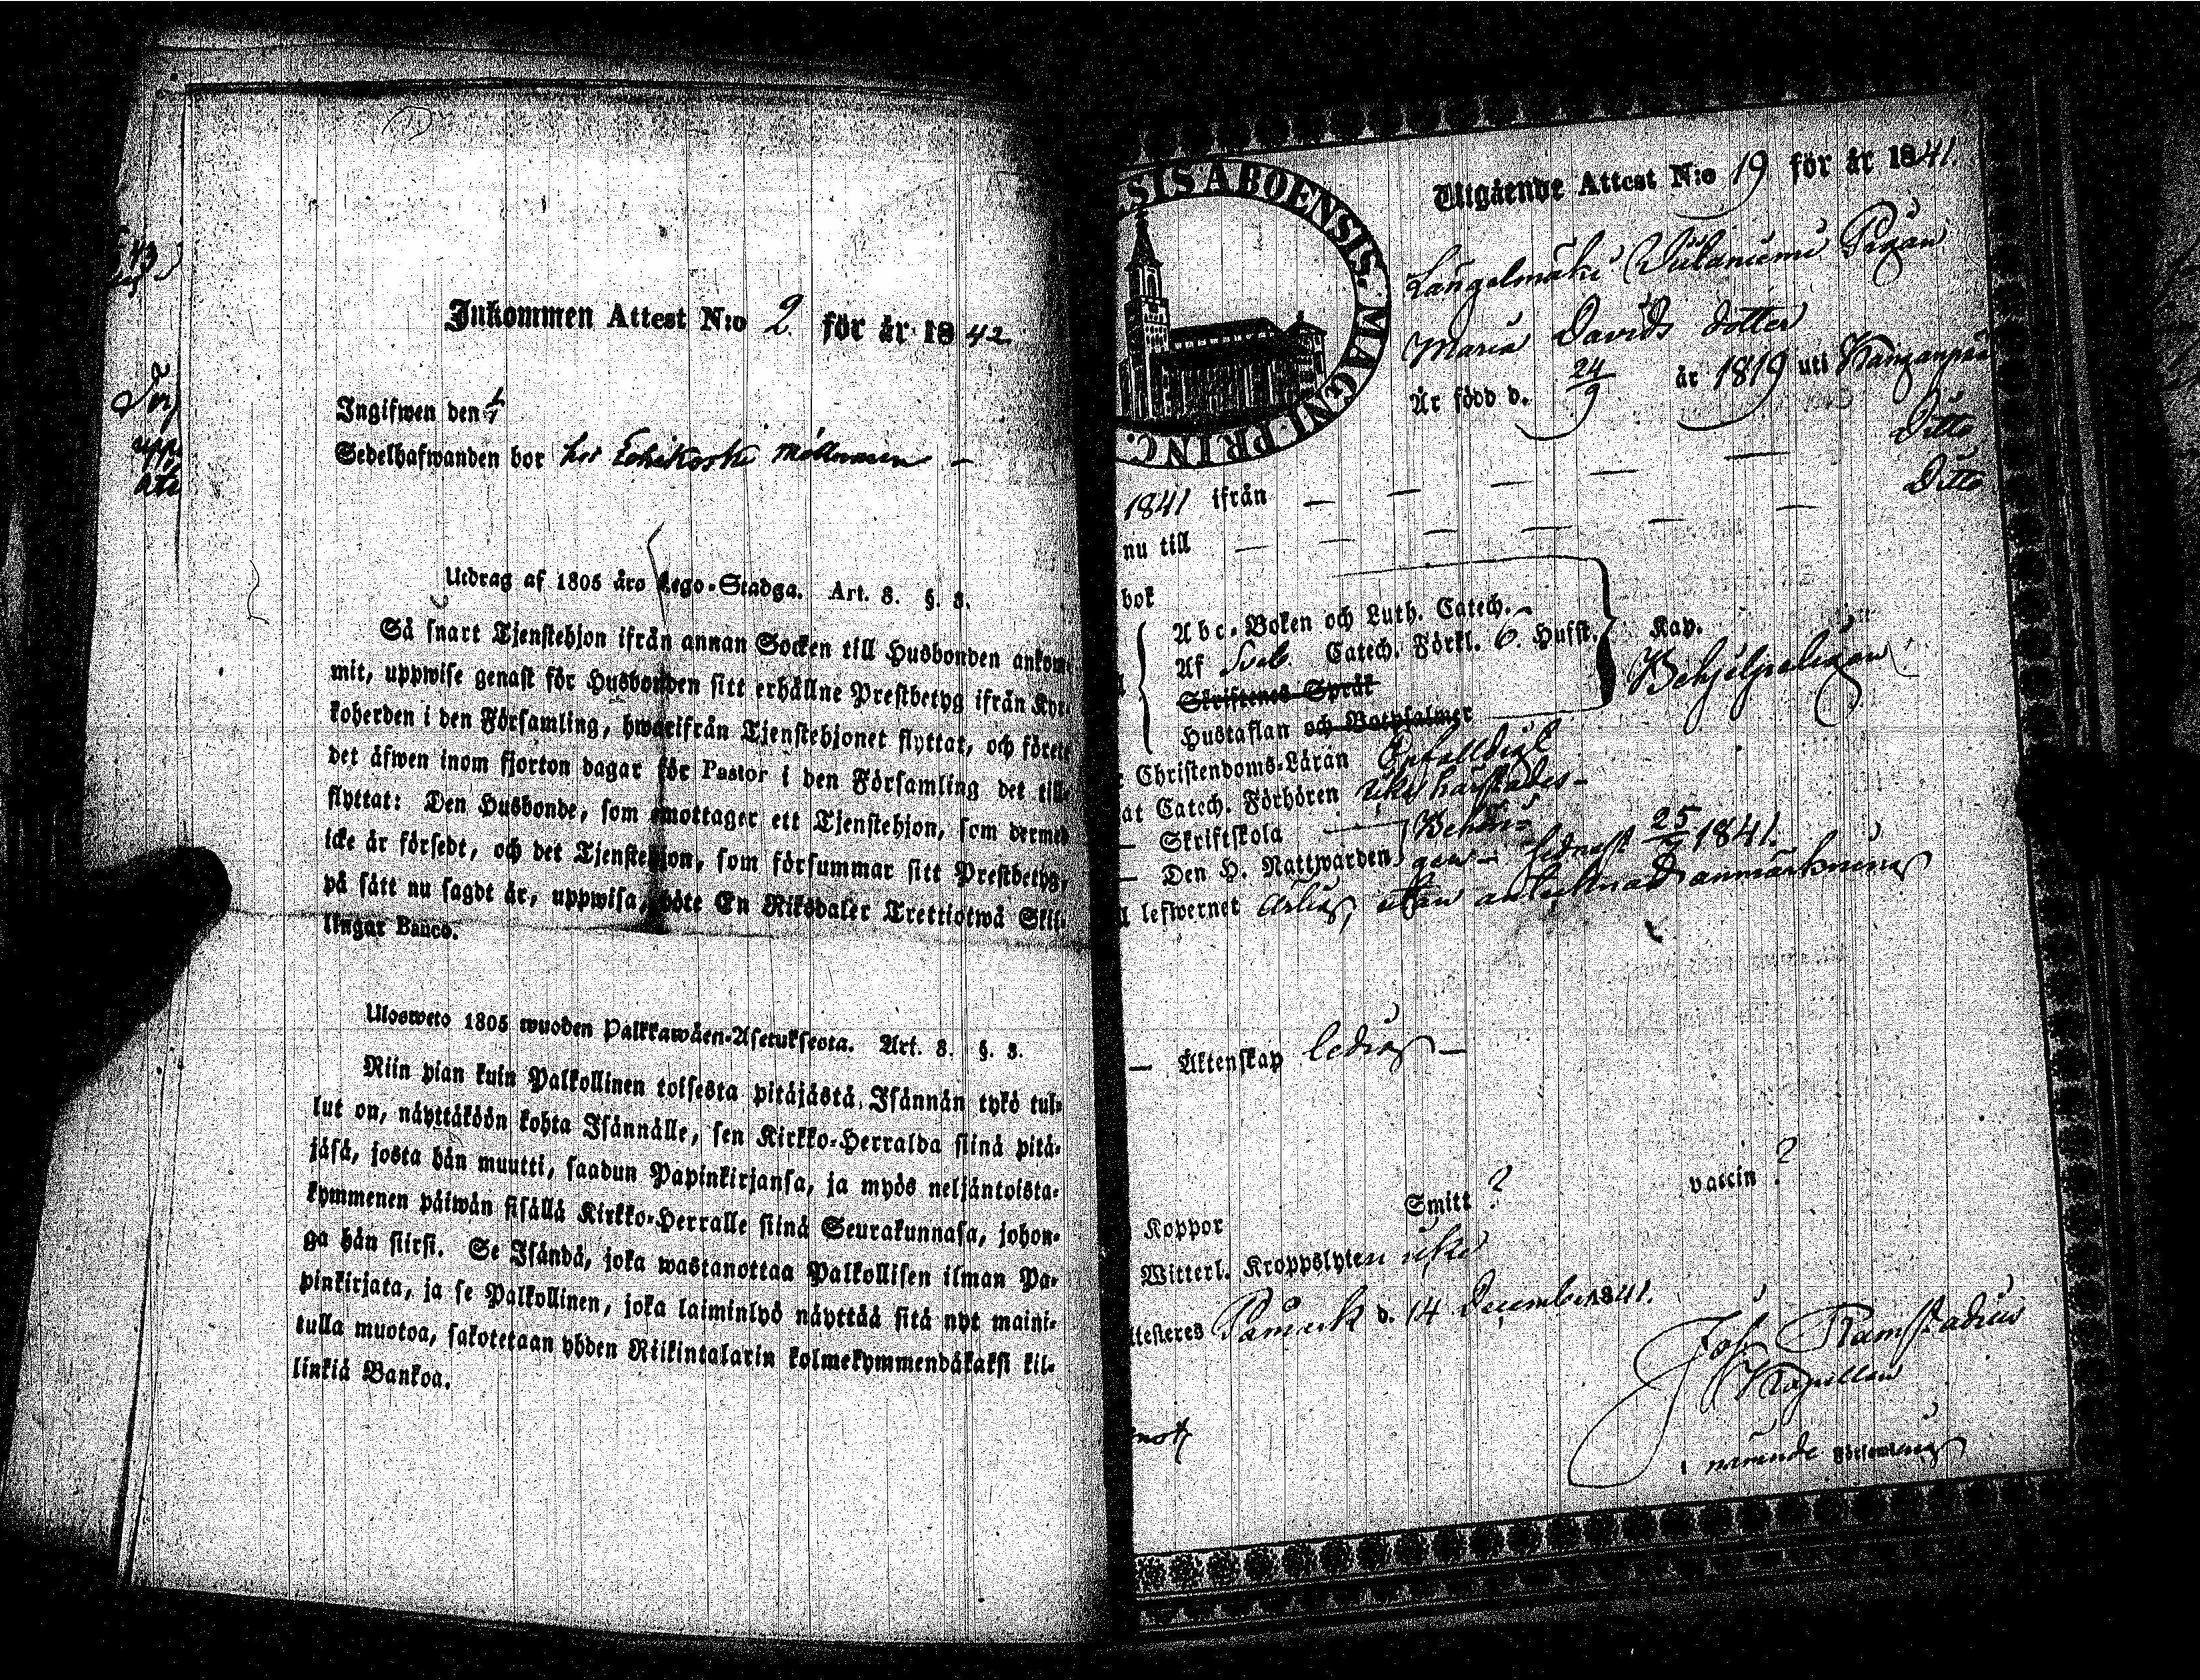 Inkommen Attest N:o 2 för år 1842
Ingifwen den
Sedelhafwanden bor hos
Utdrag af 1805 års Lego-Stadga. Art. 8. §. 3.
Så snart Tjenstehjon ifrån annan Socken till Husbonden ankom-
mit, uppwise genast för Husbonden sitt erhållne Prestbetyg ifrån Kyr-
koherden i den Församling, hwarifrån Tjenstehjonet flyttat, och förete
det äfwen inom fjorton dagar för Pastor i den Församling det till-
flyttat: Den Husbonde, som emottager ett Tjenstehjon, som dermed
icke är försedt, och det Tjenstehjon, som försummar sitt Prestbetyg,
på sätt nu sagdt är, uppwisa, böte En Riksdaler Trettiotwå Skil-
lingar Banco.
Ulosweto 1805 wuoden Palkkawäen-Asetuksesta. Art. 8. §. 3.
Niin pian kuin Palkollinen toisesta pitäjästä Isännän tykö tul-
lut on, näyttäköön kohta Isännälle, sen Kirkko-Herralda siinä pitä-
jäsä, josta hän muutti, saadun Papinkirjansa, ja myös neljäntoista-
kymmenen päiwän sisällä Kirkko-Herralle siinä Seurakunnasa, johon-
ga hän siirsi. Se Isändä, joka wastanottaa Palkollisen ilman Pa-
pinkirjata, ja se Palkollinen, joka laiminlyö näyttää sitä nyt maini-
tulla muotoa, sakotetaan yhden Riikintalarin kolmekymmendäkaksi kil-
linkiä Bankoa.
SIS ABOENSIS. MAGNI. PRINC.
Utgående Attest N:o 19 för år 1841.
Längelmäki Pigan
Maria Davids dotter
Är född d. 24/9 år 1819 uti
Ditto
1841 ifrån — — — — — Ditto
nu till — — — — — —
bok
Abc-Boken och Luth. Catech.
Af Sveb. Catech. Förkl. 6 Husst. Kap.
Skriftenes Språk Behjelpeligen
Hustaflan och Botpsalmer
Christendoms-Läran Enfalldigt
at Catech. Förhören
— Skriftskola
— Den H. Nattwarden sednast 25/7 1841.
lefwernet ärlig, utan antecknad anmärkning
— Äktenskap ledig —
Koppor Smitt ? vaccin ?
Witterl. Kroppslyten icke
ttesteres Påmark d. 14 December 1841.
Joh Ramstadius
Kapellan
i nämnde Församling